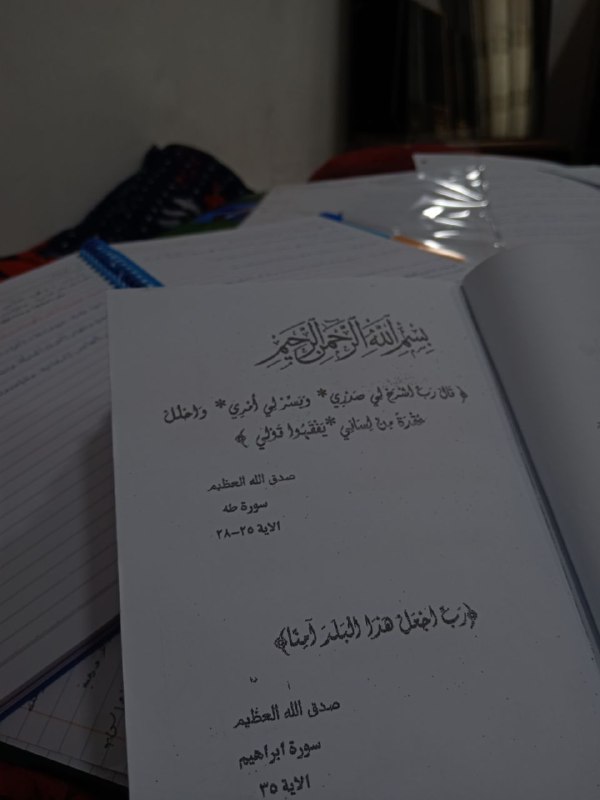 بِسْمِ اللَّهِ الرَّحْمَنِ الرَّحِيمِ
﴿ قَالَ رَبِّ اشْرَحْ لِي صَدْرِي * وَيَسِّرْ لِي أَمْرِي * وَاحْلُلْ
عُقْدَةً مِنْ لِسَانِي * يَفْقَهُوا قَوْلِي ﴾
صدق الله العظيم
سورة طه
الاية ٢٥-٢٨
﴿رَبِّ اجْعَلْ هَذَا الْبَلَدَ آمِنًا﴾
صدق الله العظيم
سورة ابراهيم
الاية ٣٥